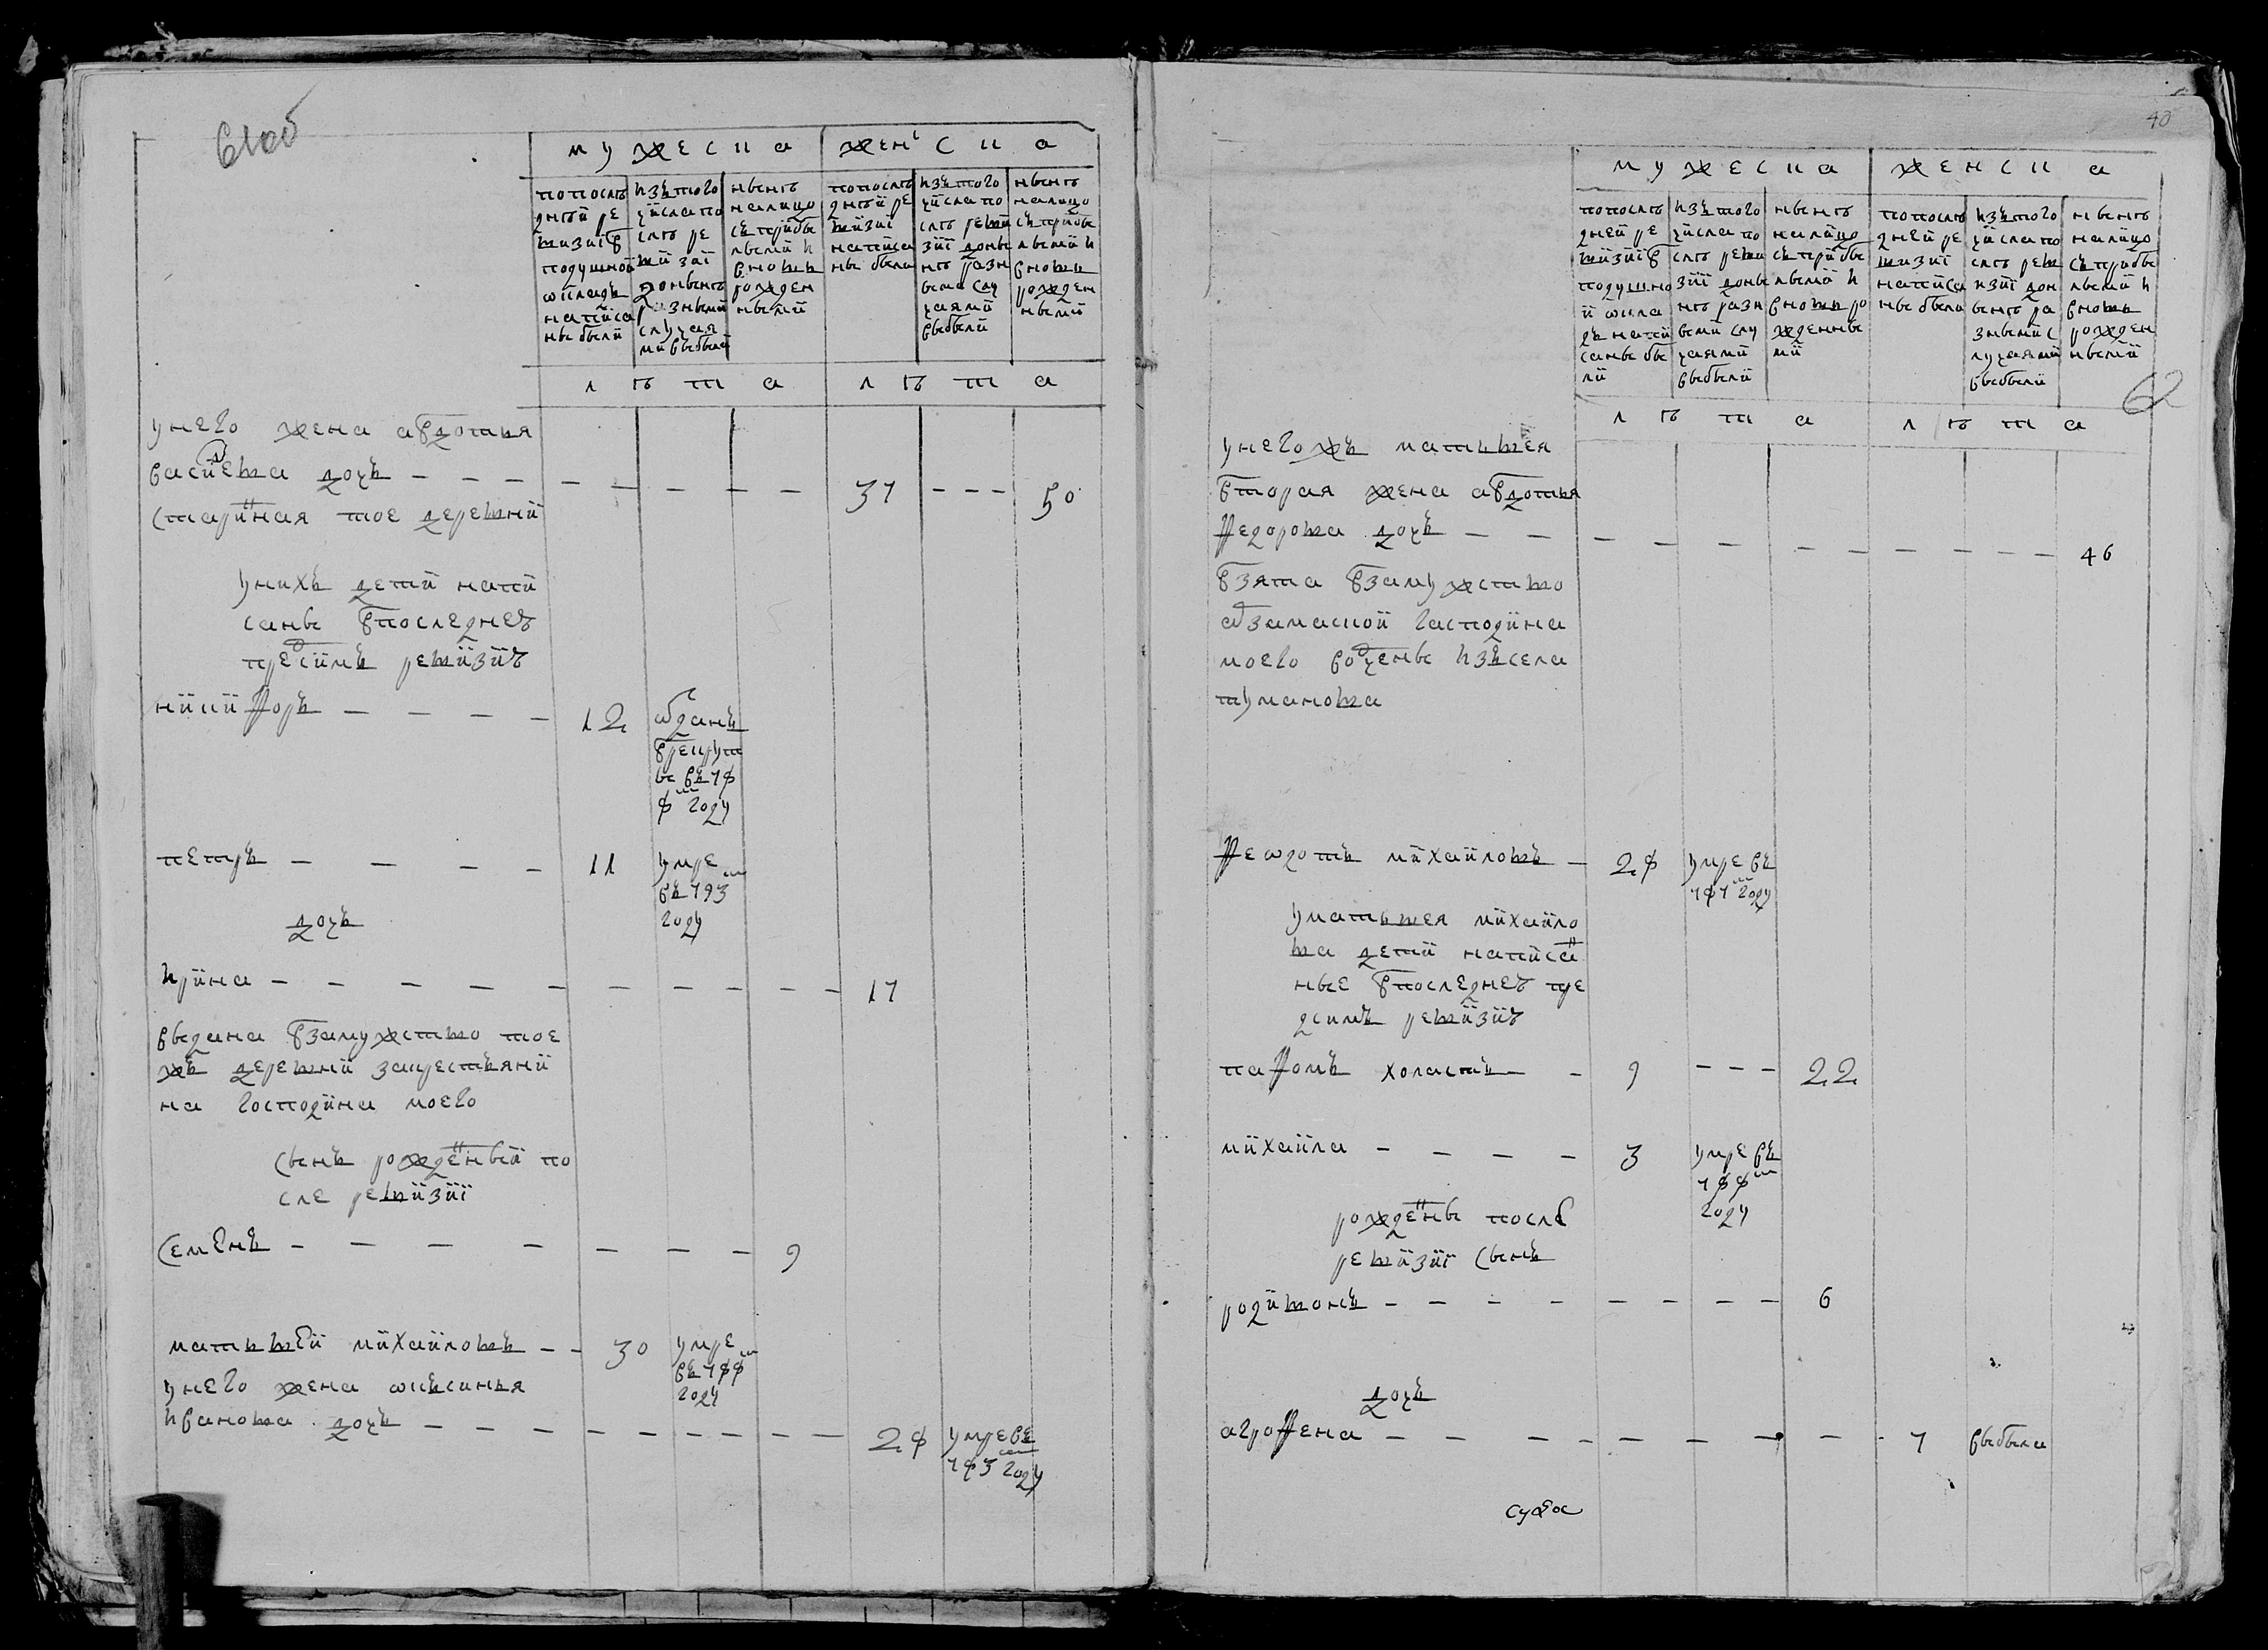 61 об
мужеска женска
попослѣ
днѣй ре
визiи в
подушной
ѡкладъ
написа
ны были
изътого
числа по
слѣ ре
визiи
донынѣ
разными
случая
ми выбыли
нынѣ
налицо
съприбы
лыми и
вновь
рожден
ными
попослѣ
днѣй ре
визiи
написа
ны была
изътого
числа по
слѣ реви
зiи доны
нѣ разн
ыма слу
чаями
выбыли
нынѣ
налицо
съприбы
лыми и
вновь
рожден
ными
лѣта лѣта
унего жена авдотья
васильева дочь 37 50
старинная тое деревни
унихъ дети напи
саны впоследнеѣ
предсимъ ревизиѣ
никифоръ 12 абданъ
врекрут
ы въ 7ф
ф м году
петръ 11 умре
въ 793 м
году
дочь
ирина 17
выдана взамужство тое
жъ деревни закрестьяни
на господина моего
сынъ рожденый по
сле ревизiи
семенъ 9
матьвѣй михайловъ 30 умре
въ 7фф м
году
унего жена ѡксинья
иванова дочь 2ф умре въ
7ф3 м году
40
62
мужеска женска
попослѣ
дней ре
визiи в
подушно
й ѡкла
дъ напи
саны бы
ли
изътого
числа по
слѣ реви
зiи доны
нѣ разн
ыми слу
чаями
выбыли
нынѣ
налицо
съприбы
лыми и
вновь ро
жденны
ми
попослѣ
дней ре
визiи
написа
ны была
изътого
числа по
слѣ рев
изiи дон
ынѣ ра
зными с
лучаями
выбыли
нынѣ
налицо
съприбы
лыми и
вновь
рожден
ными
лѣта лѣта
унегожъ матьвея
вторая жена авдотья
федорова дочь 46
взята взамужство
абзамаской гасподина
моего вочены изъсела
туманова
феѡдотъ михайловъ 2ф умре въ
7ф7 м году
уматьвея михайло
ва дети написа
ные впоследнеѣ пре
дсимъ ревизиѣ
пафомъ холастъ 9 22
михайла 3 умре въ
7фф м
году
рождены послѣ
ревизiи сынъ
родивонъ 6
дочь
аграфена 7 выбыла